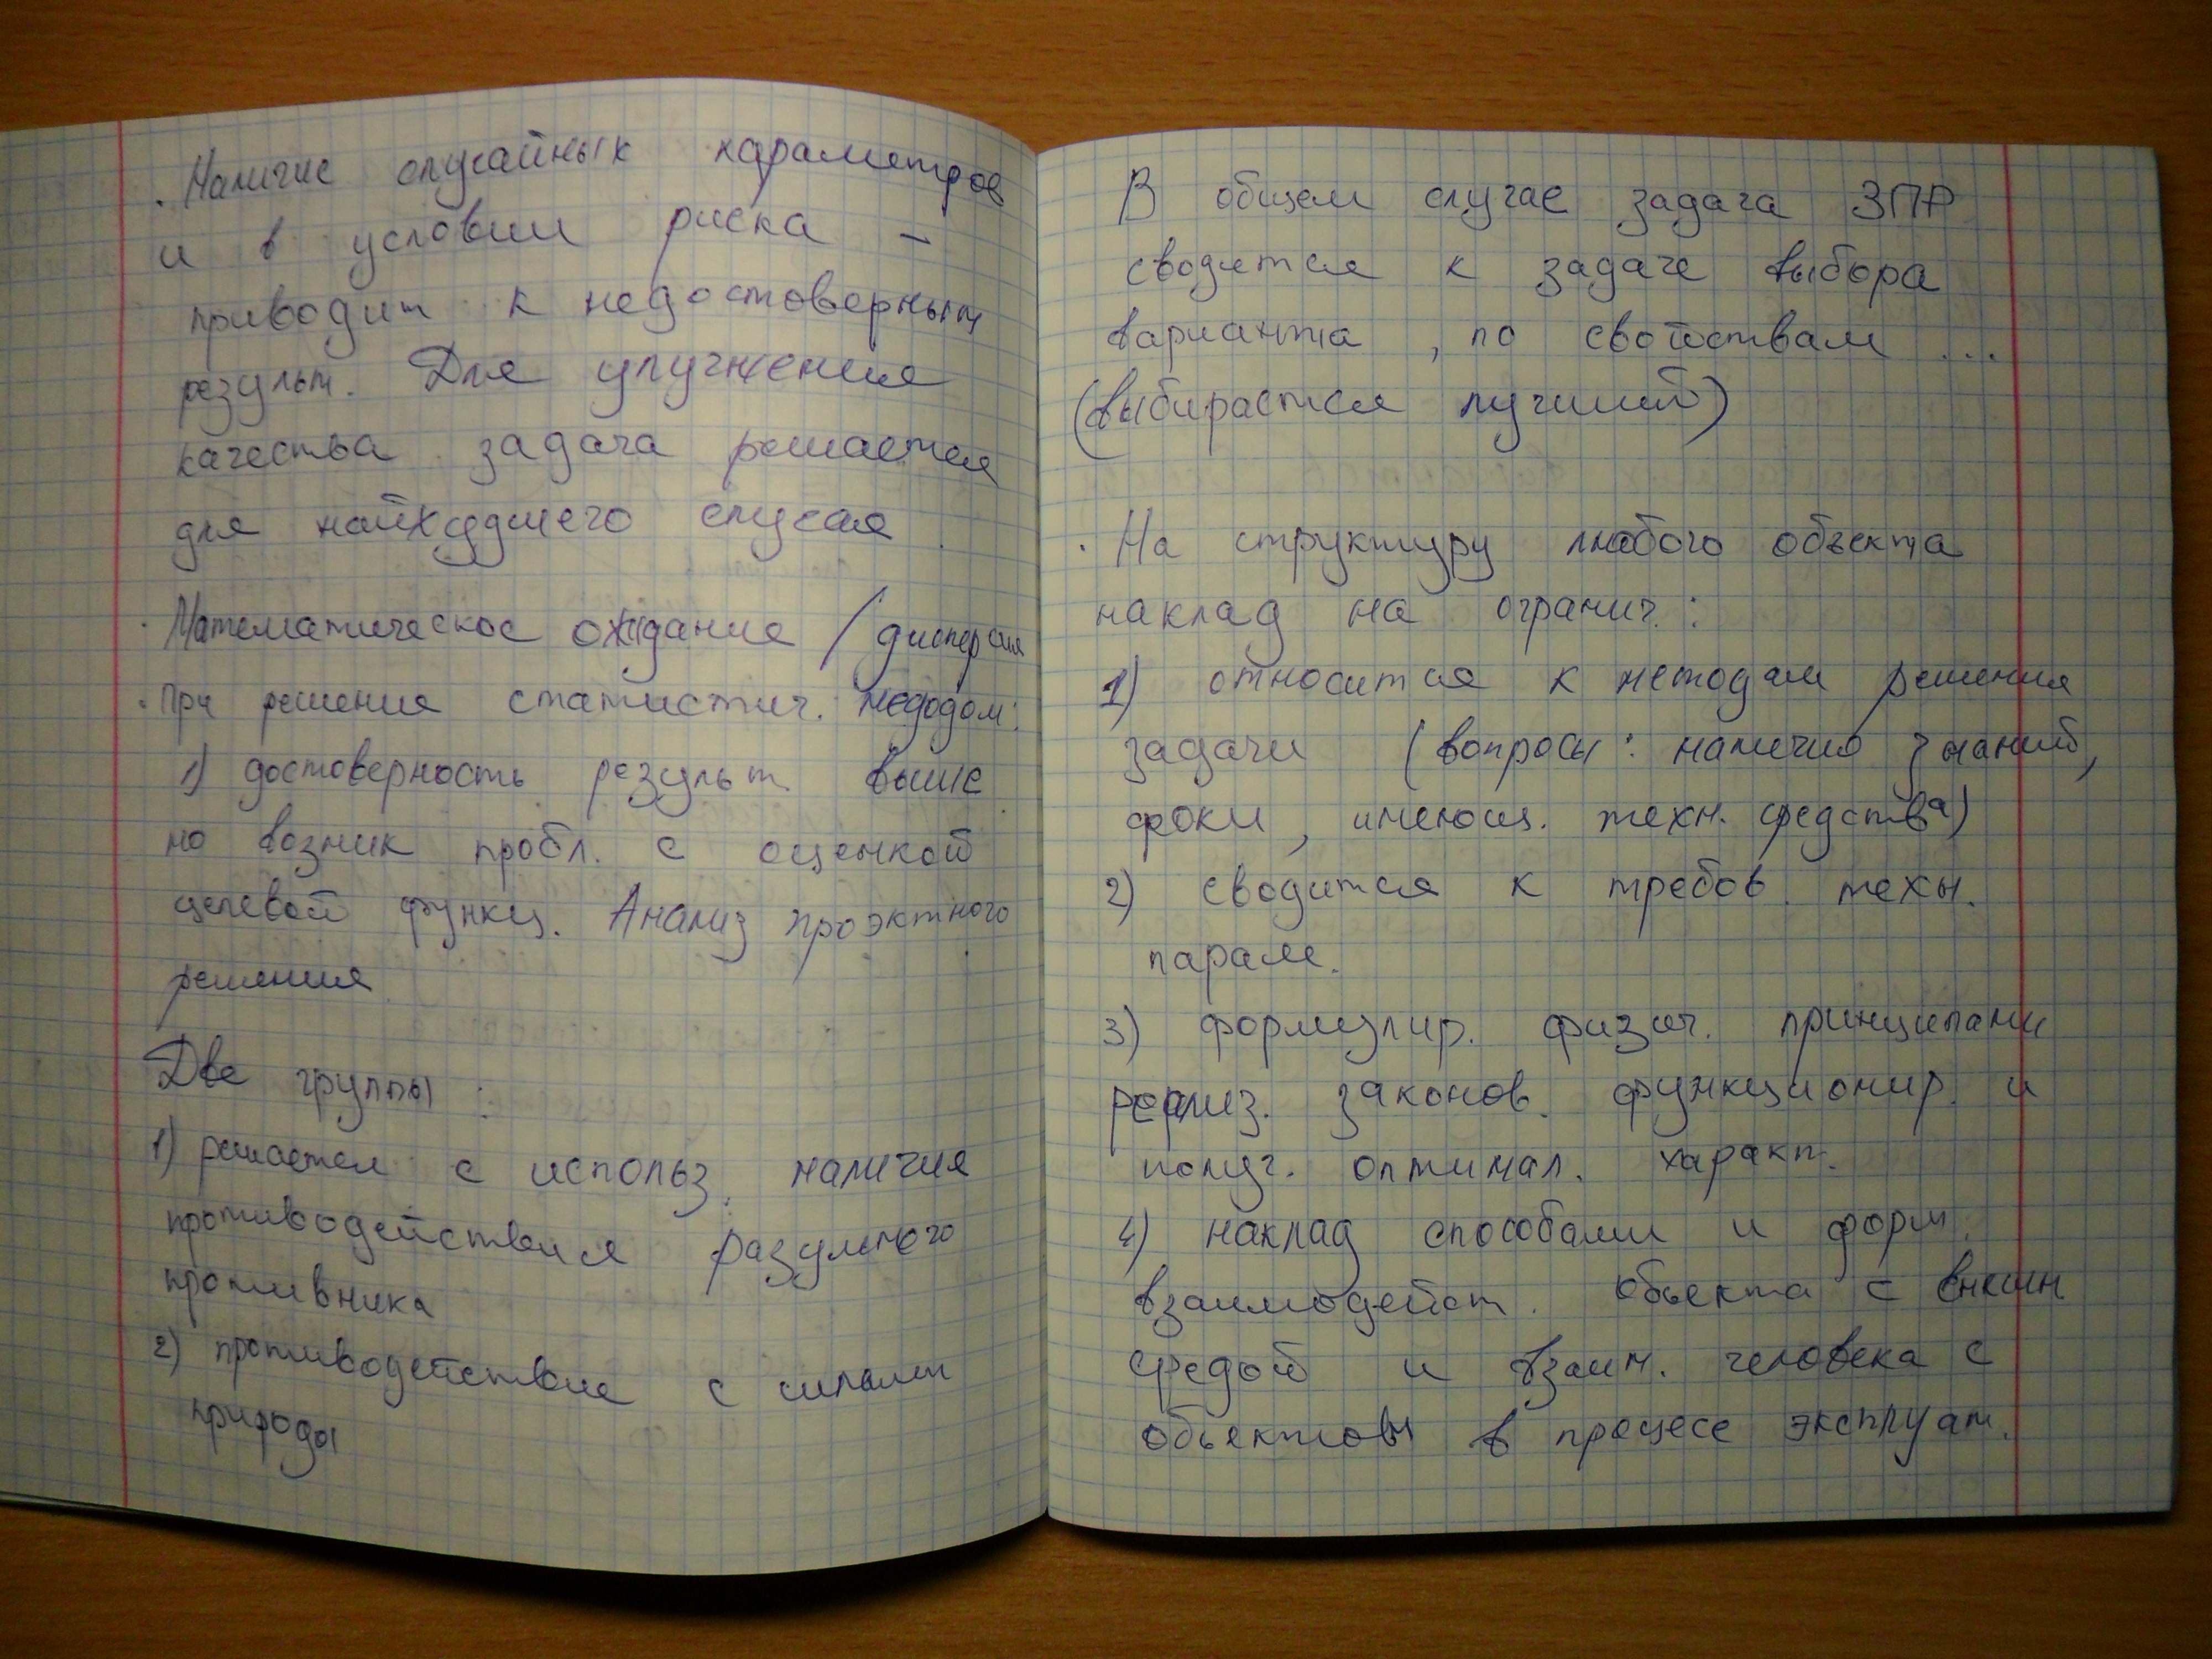 · Наличие случайных параметров
и в условии риска –
приводит к недостоверным
результ. Для улучшения
качества задача решается
для найхудшего случая
· Математическое ожидание / дисперсия
· При решения статистич. медодом:
1) достоверность результ. выше
но возник пробл. с оценкой
целевой функц. Анализ проэктного
решения.
Две группы :
1) решается с использ. наличия
противодействия разумного
противника
2) противодействие с силами
природы
В общем случае задача ЗПР
сводится к задаче выбора
варианта , по свойствам ...
(выбирается лучший)
· На структуру любого объекта
наклад на огранич. :
1) относится к методам решения
задачи (вопросы : наличие знаний,
сроки , имеющ. техн. средства)
2) сводится к требов. техн.
парам.
3) формулир. физич. принципами
реализ. законов. функционир. и
получ. оптимал. характ.
4) наклад способами и форм.
взаимодейст. объекта с внешн
средой и взаим. человека с
объектом в процесе эксплуат.